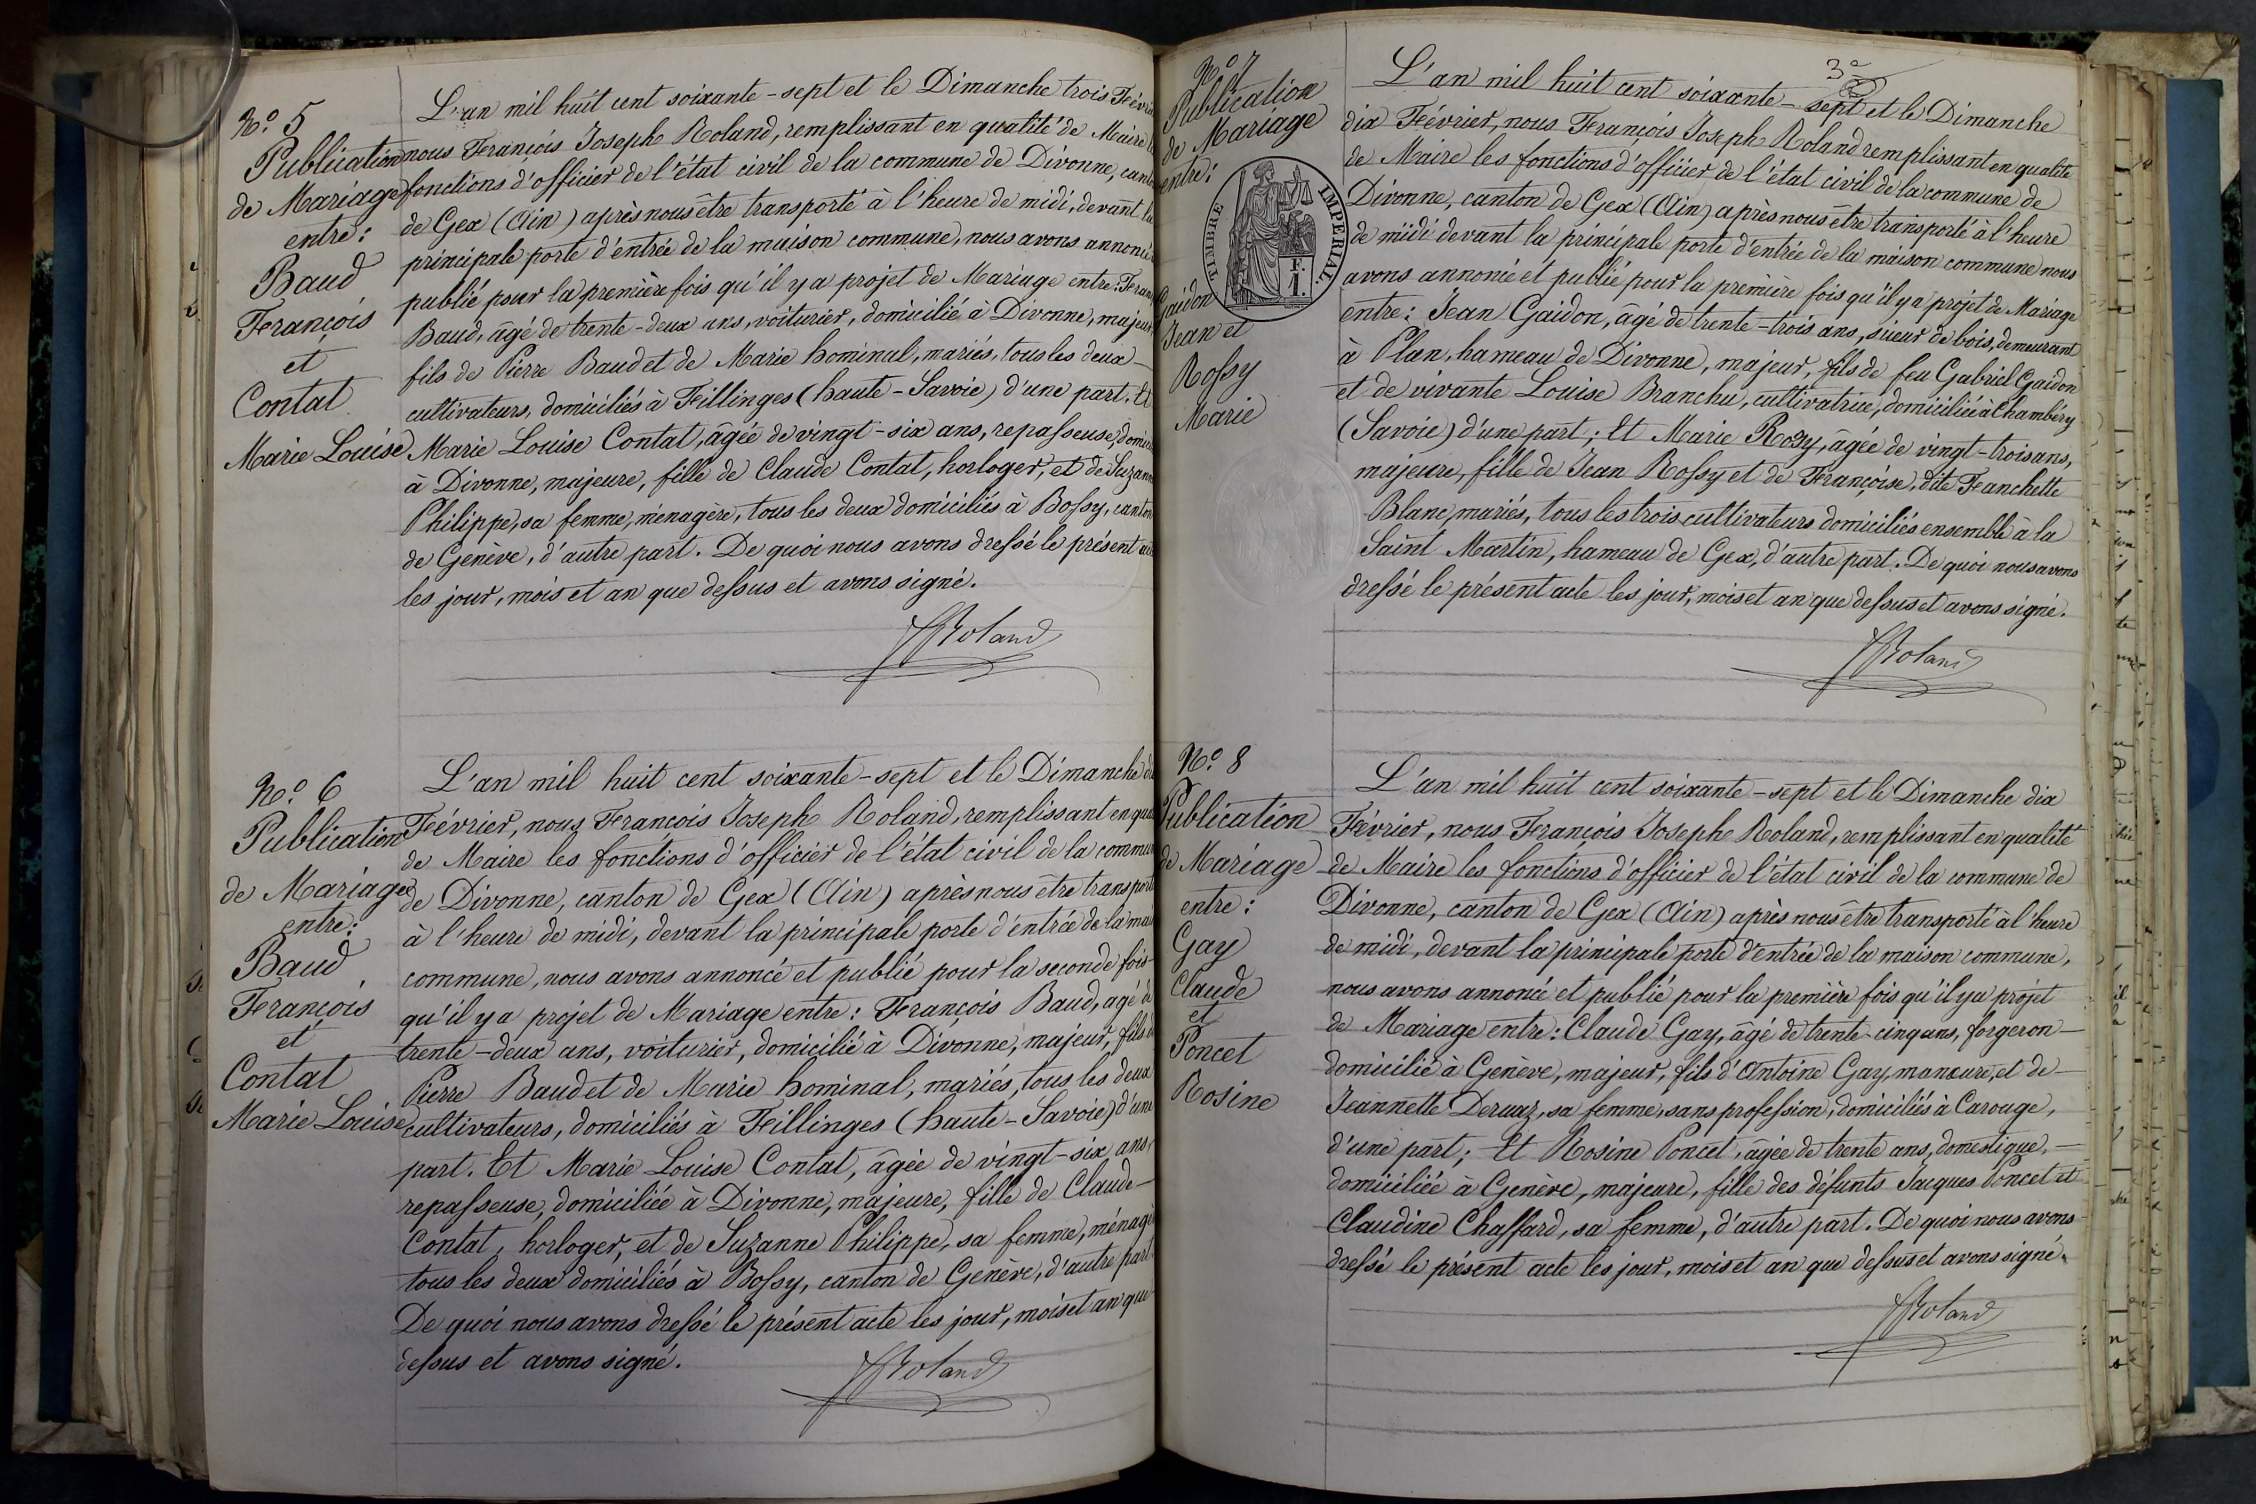 N.o 5
Publication
de Mariage
entre:
Baud
François
et
Contat
Marie Louise
L'an mil huit cent soixante-sept et le Dimanche trois Févri
nous François Joseph Roland, remplissant en qualité de Maire
fonctions d'officier de l'état civil de la commune de Divonne, cant
de Gex (Ain) après nous être transporté à l'heure de midi, devant la
principale porte d'entrée de la maison commune, nous avons annoncé
publié pour la première fois qu'il y a projet de Mariage entre: Fran
Baud, âgé de trente-deux ans, voiturier, domicilié à Divonne, majeur,
fils de Pierre Baud et de Marie hominal, mariés, tous les deux
cultivateurs, domiciliés à Fillinges (haute-Savoie) d'une part. Et
Marie Louise Contat, âgée de vingt-six ans, repasseuse, domici
à Divonne, majeure, fille de Claude Contat, horloger, et de Suzann
Philippe, sa femme, ménagère, tous les deux domiciliés à Bossy, canton
de Genève, d'autre part. De quoi nous avons dressé le présent acte
les jour, mois et an que dessus et avons signé.
Roland
N.o 6
Publication
de Mariage
entre:
Baud
François
et
Contat
Marie Louise
L'an mil huit cent soixante-sept et le Dimanche di
Février, nous François Joseph Roland, remplissant en qua
de Maire les fonctions d'officier de l'état civil de la commun
de Divonne, canton de Gex (Ain) après nous être transporté
à l'heure de midi, devant la principale porte d'entrée de la mai
commune, nous avons annoncé et publié pour la seconde fois
qu'il y a projet de Mariage entre: François Baud, agé de
trente-deux ans, voiturier, domicilié à Divonne, majeur, fils de
Pierre Baud et de Marie hominal, mariés, tous les deux
cultivateurs, domiciliés à Fillinges (haute-Savoie) d'une
part. Et Marie Louise Contat, âgée de vingt-six ans,
repasseuse, domiciliée à Divonne, majeure, fille de Claude
Contat, horloger, et de Suzanne Philippe, sa femme, ménagè
tous les deux domiciliés à Bossy, canton de Genève, d'autre part
De quoi nous avons dressé le présent acte les jour, mois et an que
dessus et avons signé.
Roland
3e
N.o 7
Publication
de Mariage
entre:
TIMBRE IMPERIAL
1 F.
Gaidon
Jean et
Rossy
Marie
L'an mil huit cent soixante-sept et le Dimanche
dix Février, nous François Joseph Roland remplissant en qualité
de Maire les fonctions d'officier de l'état civil de la commune de
Divonne, canton de Gex (Ain) après nous être transporté à l'heure
de midi devant la principale porte d'entrée de la maison commune nous
avons annoncé et publié pour la première fois qu'il y a projet de Mariage
entre: Jean Gaidon, âgé de trente-trois ans, scieur de bois, demeurant
à Plan, hameau de Divonne, majeur, fils de feu Gabriel Gaidon
et de vivante Louise Branchu, cultivatrice, domiciliée à Chambéry
(Savoie) d'une part; Et Marie Rossy, âgée de vingt-trois ans,
majeure, fille de Jean Rossy et de Françoise, dite Franchette
Blanc, mariés, tous les trois cultivateurs domiciliés ensemble à la
Saint Martin, hameau de Gex, d'autre part. De quoi nous avons
dressé le présent acte les jour, mois et an que dessus et avons signé.
Roland
N.o 8
Publication
de Mariage
entre:
Gay
Claude
et
Poncet
Rosine
L'an mil huit cent soixante-sept et le Dimanche dix
Février, nous François Joseph Roland, remplissant en qualité
de Maire les fonctions d'officier de l'état civil de la commune de
Divonne, canton de Gex (Ain) après nous être transporté à l'heure
de midi, devant la principale porte d'entrée de la maison commune,
nous avons annoncé et publié pour la première fois qu'il y a projet
de Mariage entre: Claude Gay, âgé de trente-cinq ans, forgeron
domicilié à Genève, majeur, fils d'Antoine Gay, et de
Jeannette Deruaz, sa femme, sans profession, domiciliés à Carouge,
d'une part; Et Rosine Poncet, âgée de trente ans, domestique,
domiciliée à Genève, majeure, fille des défunts Jacques Poncet et
Claudine Chaffard, sa femme, d'autre part. De quoi nous avons
dressé le présent acte les jour, mois et an que dessus et avons signé.
Roland